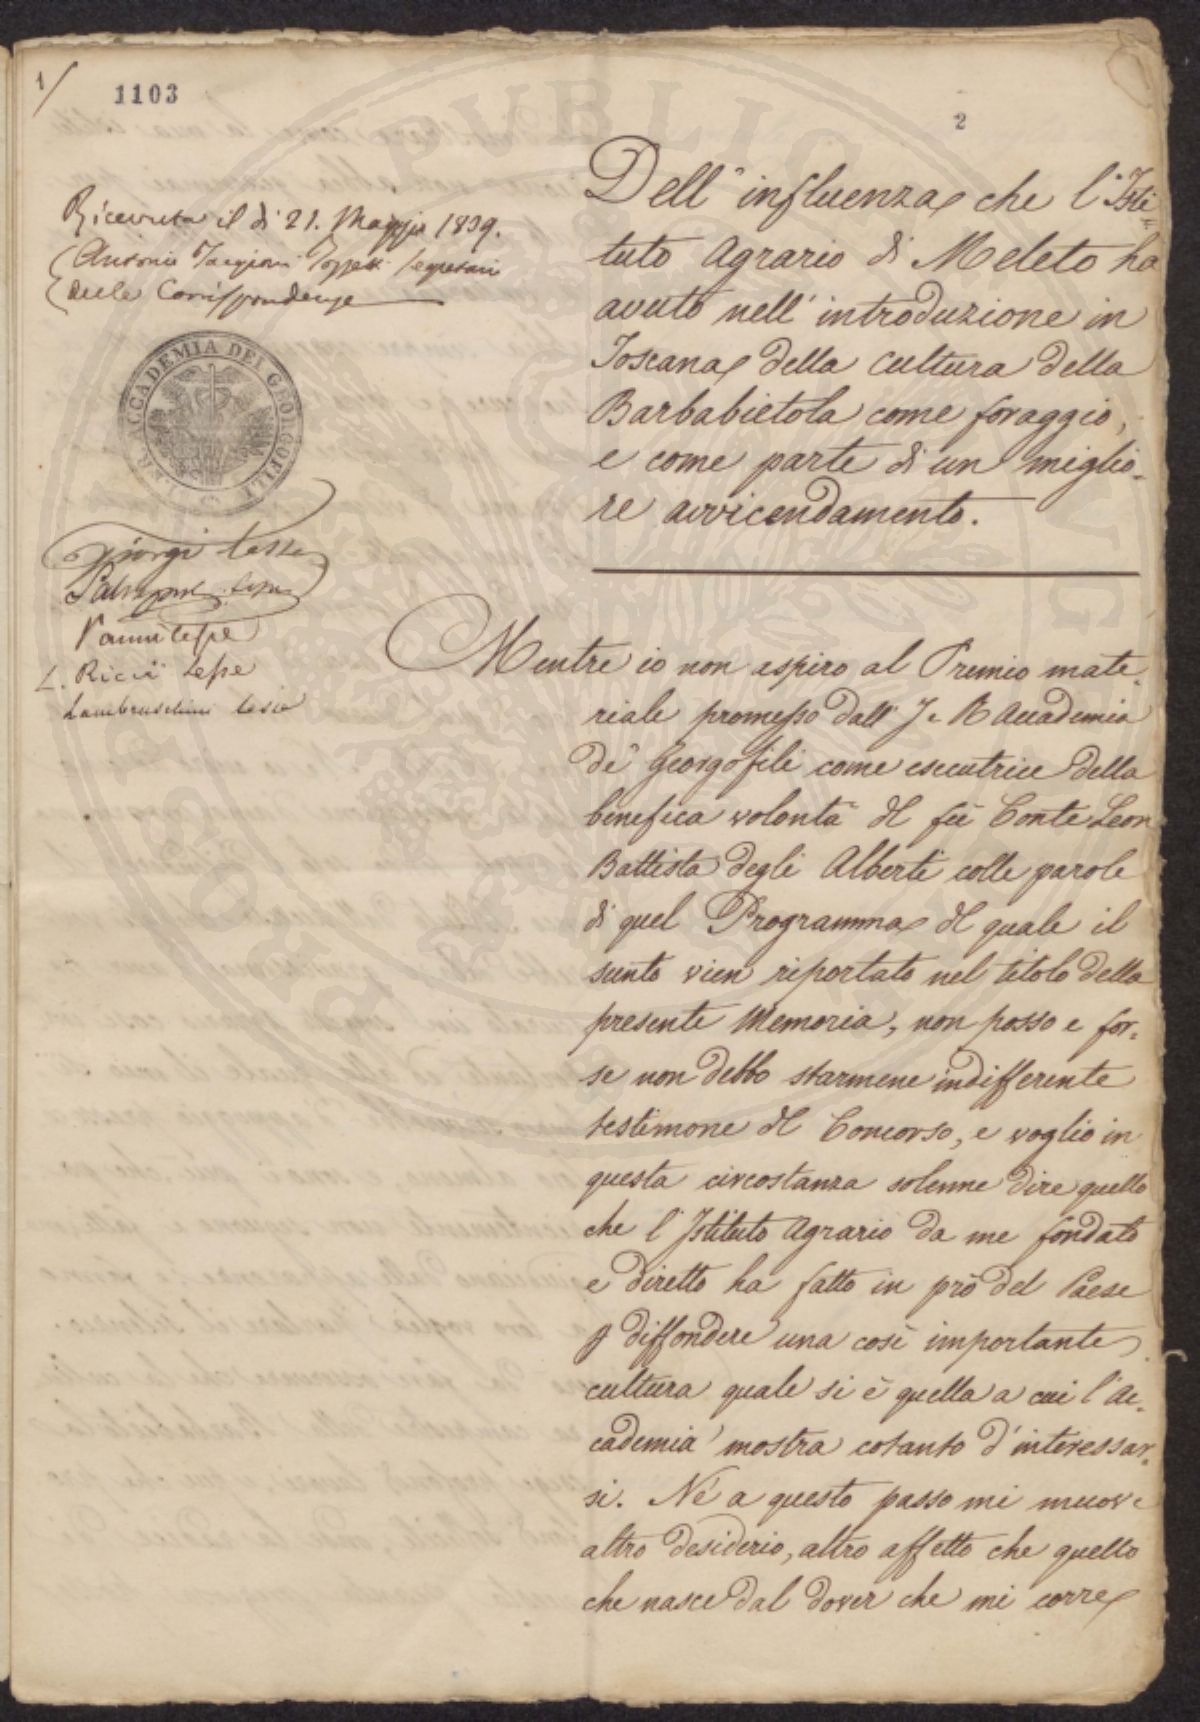 1/
1103
2
Ricevuta il dì 21. Maggio 1839.
Antonio Targioni Tozzetti Segretario
delle Corrispondenze
ACCADEMIA DEI GEORGOFILI
Giorgi lesse
lesse
Vanni lesse
L. Ricci lesse
Lambruschini lesse
Dell' influenza che l'Isti=
tuto Agrario di Meleto ha
avuto nell' introduzione in
Toscana della cultura della
Barbabietola come foraggio,
e come parte di un miglio=
re avvicendamento.
Mentre io non aspiro al Premio mate=
riale promesso dall' I. e R Accademia
de' Georgofili come esecutrice della
benefica volontà del fù Conte Leon
Battista degli Alberti colle parole
di quel Programma del quale il
sunto vien riportato nel titolo della
presente Memoria, non posso e for=
se non debbo starmene indifferente
testimone del Concorso, e voglio in
questa circostanza solenne dire quello
che l'Istituto Agrario da me fondato
e diretto ha fatto in prò del Paese
p diffondere una così importante
cultura quale si è quella a cui l'Ac=
cademia mostra cotanto d'interessar=
si. Nè a questo passo mi muove
altro desiderio, altro affetto che quello
che nasce dal dover che mi corre